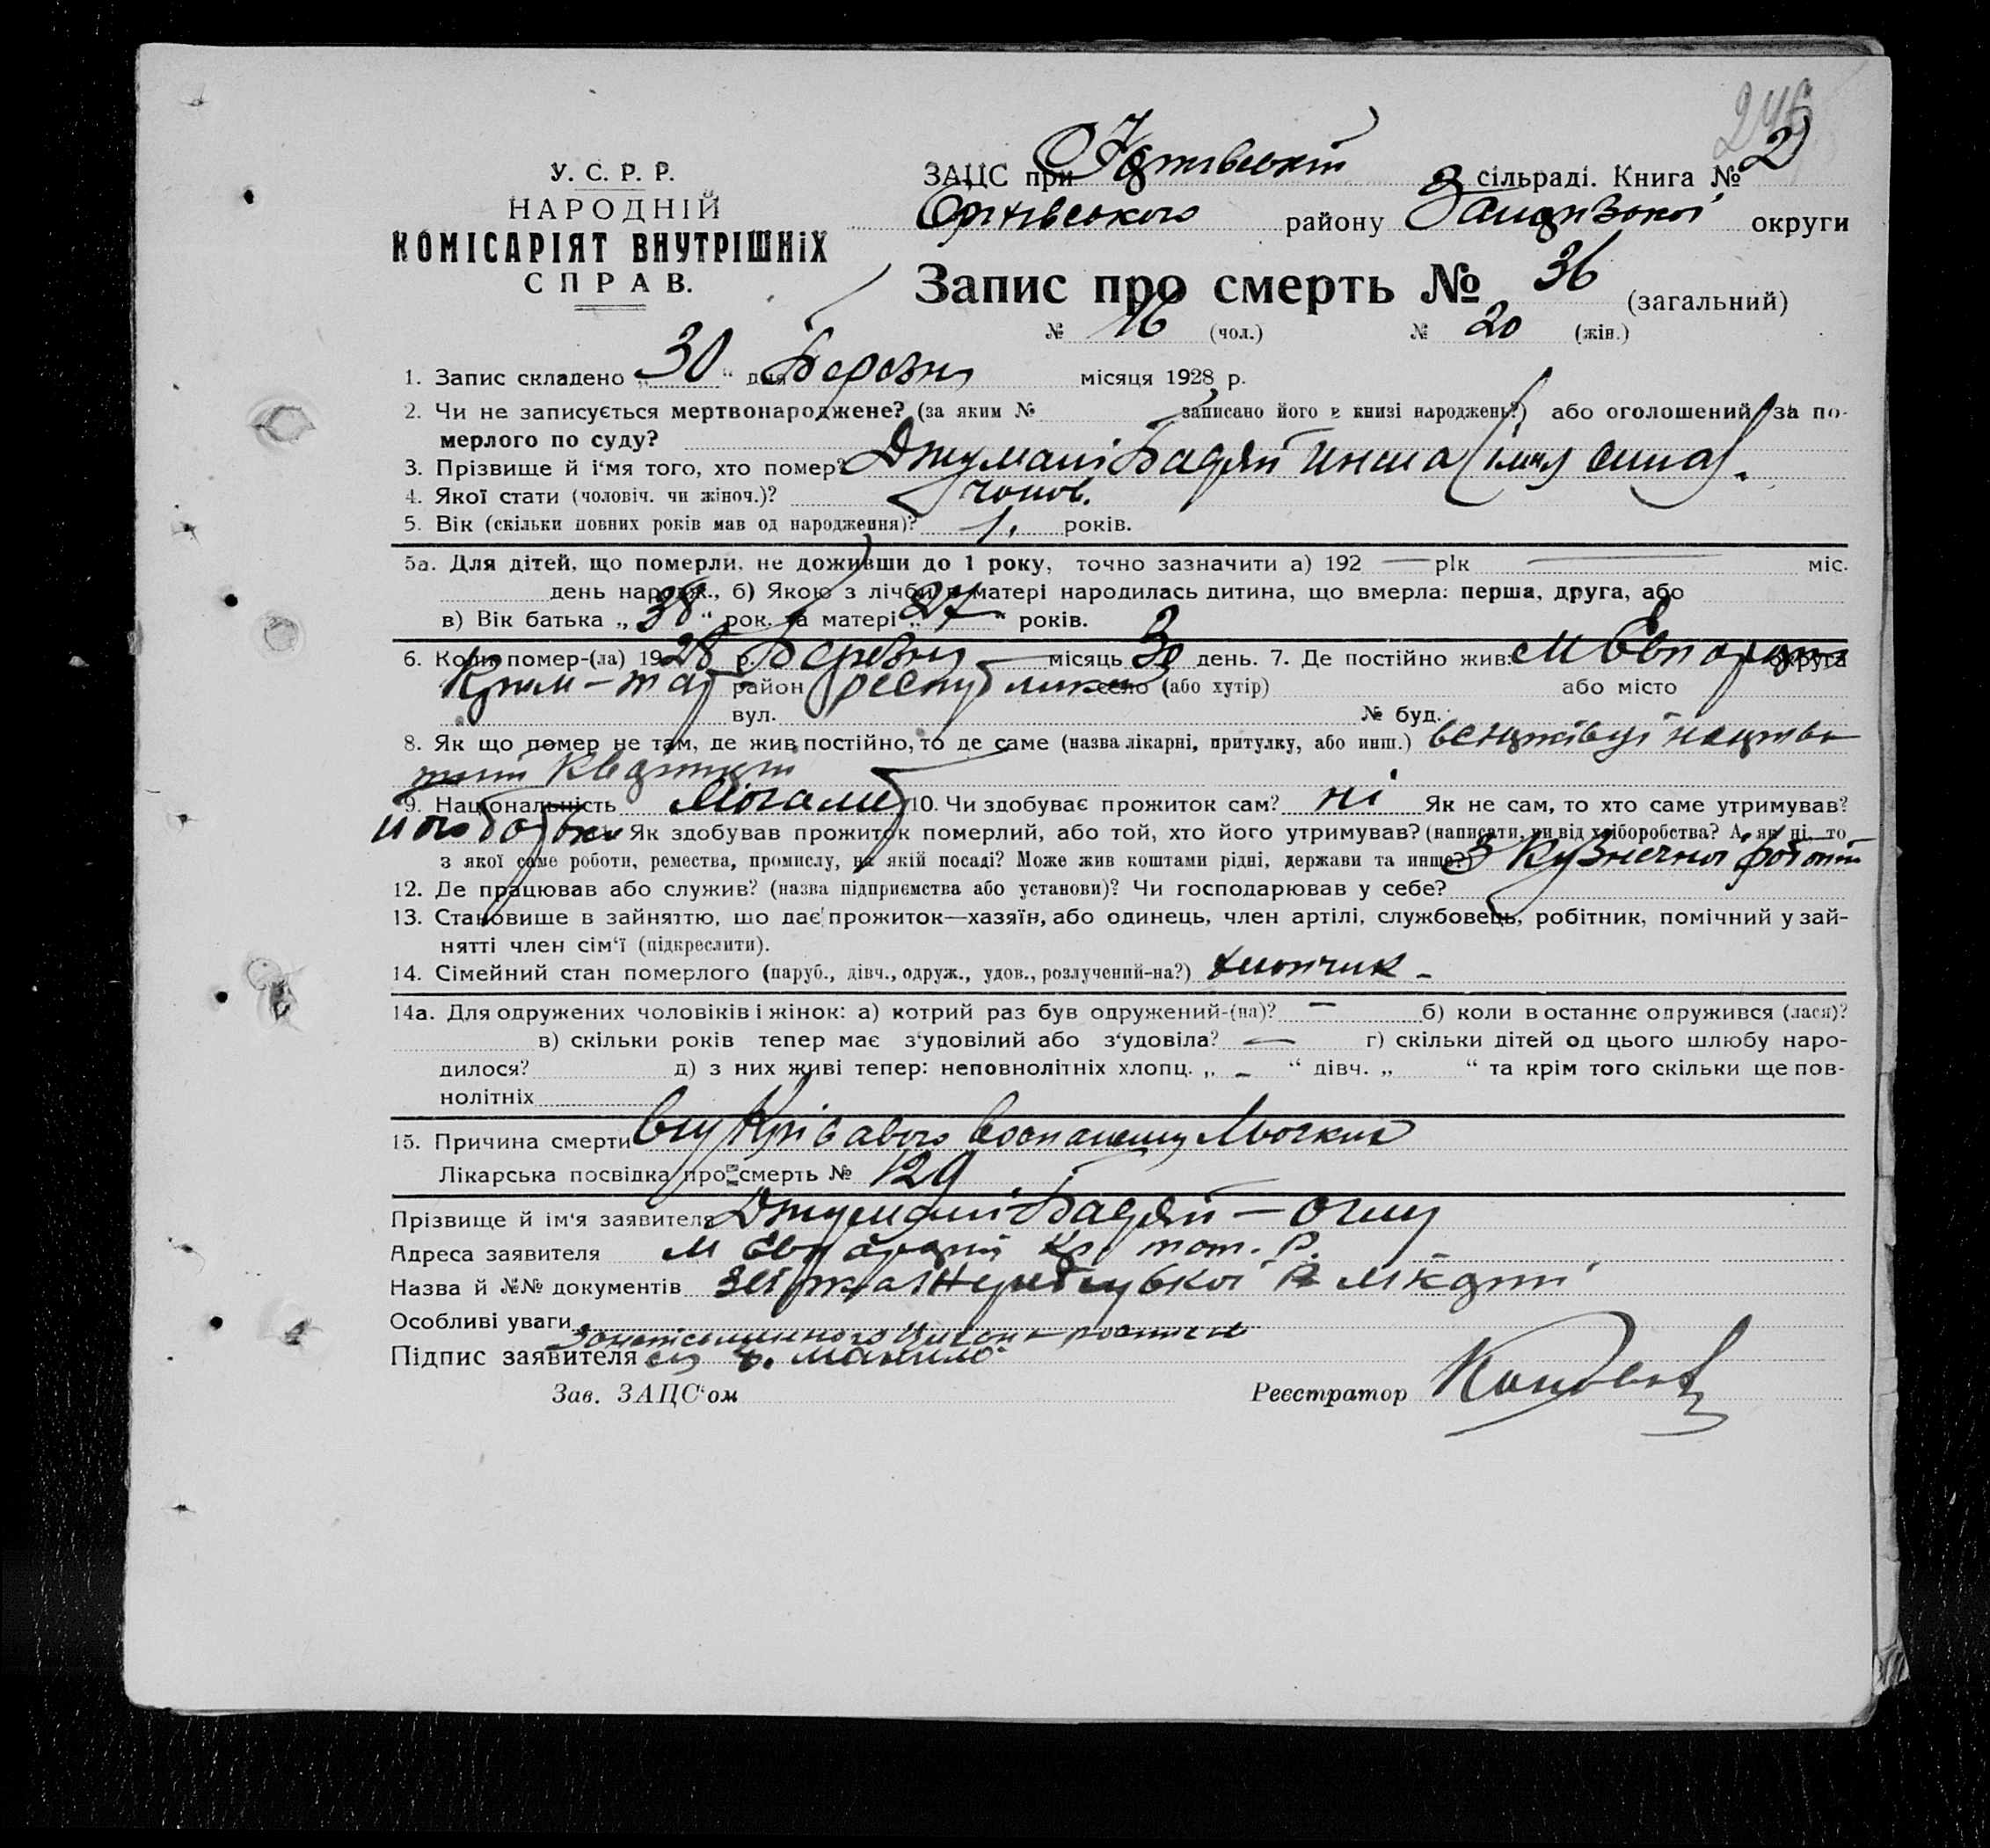 246
У. С. Р. Р.
НАРОДНІЙ
КОМІСАРІЯТ ВНУТРІШНІХ
СПРАВ.
ЗАЦС при сільраді. Книга № 2
Оріхівського району Запорізької округи
Запис про смерть № 36 (загальний)
№ 16 (чол.) № 20 (жін.)
1. Запис складено „ 30 “ дня Березня місяця 1928 р.
2. Чи не записується мертвонароджене? (за яким № записано його в книзі народжень?) або оголошений за по-
мерлого по суду?
3. Прізвище й і'мя того, хто помер? Джумалі Бадяй инша (імя сина).
4. Якої стати (чоловіч. чи жіноч.)? чолов.
5. Вік (скільки повних років мав од народження)? 1. років.
5а. Для дітей, що померли, не доживши до 1 року, точно зазначити а) 192 — рік — міс.
день народж., б) Якою з лічби в матері народилась дитина, що вмерла: перша, друга, або
в) Вік батька „ 38 “ рок. та матері „ 27 “ років.
6. Коли помер-(ла) 1928 р. Березня місяць 30 день. 7. Де постійно жив: М Евпаторія округа
Крим-тат район республика село (або хутір) або місто
вул. № буд.
8. Як що помер не там, де жив постійно, то де саме (назва лікарні, притулку, або инш.)
квартирі
9. Національність 10. Чи здобуває прожиток сам? ні Як не сам, то хто саме утримував?
його батько Як здобував прожиток померлий, або той, хто його утримував? (написати, чи від хліборобства? А як ні, то
з якої саме роботи, ремества, промислу, на якій посаді? Може жив коштами рідні, держави та инше?) З Кузнечної роботи
12. Де працював або служив? (назва підприємства або установи)? Чи господарював у себе?
13. Становище в зайняттю, що дає прожиток—хазяїн, або одинець, член артілі, службовець, робітник, помічний у зай-
нятті член сім'ї (підкреслити).
14. Сімейний стан померлого (паруб., дівч., одруж., удов., розлучений-на?) хлопчик -
14а. Для одружених чоловіків і жінок: а) котрий раз був одружений-(на)? — б) коли в останнє одружився (лася)?
в) скільки років тепер має з'удовілий або з'удовіла? — г) скільки дітей од цього шлюбу наро-
дилося? д) з них живі тепер: неповнолітніх хлопц. „ - “ дівч. „ “ та крім того скільки ще пов-
нолітніх
15. Причина смерти
Лікарська посвідка про смерть № 129
Прізвище й ім'я заявителя Джумалі Бадяй —
Адреса заявителя М Евпаторія Кр. тат. Р. -
Назва й №№ документів
Особливі уваги
Підпис заявителя
Зав. ЗАЦС'ом Реєстратор